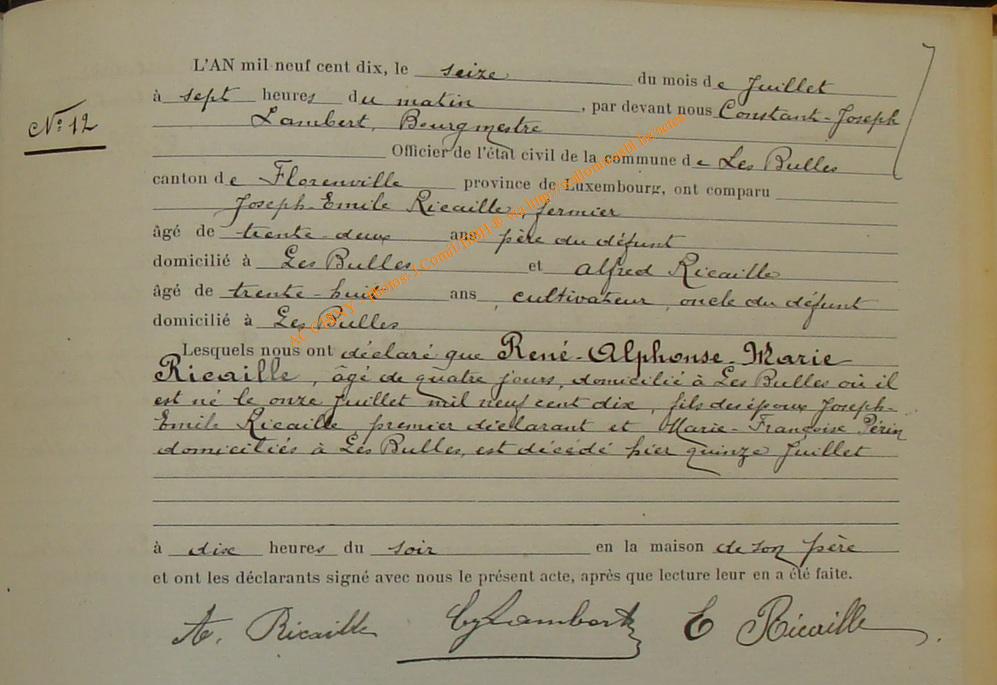 L'AN mil neuf cent dix, le seize du mois de Juillet
à sept heures du matin, par devant nous Constant-Joseph
Nº 12
Lambert, Bourgmestre
Officier de l'état civil de la commune de Les Bulles
canton de Florenville province de Luxembourg, ont comparu
Joseph-Emile Ricaille, fermier
âgé de trente-deux ans père du défunt
domicilié à Les Bulles et Alfred Ricaille
âgé de trente-huit ans, cultivateur, oncle du défunt
domicilié à Les Bulles
Lesquels nous ont déclaré que René-Alphonse-Marie
Ricaille, âgé de quatre jours, domicilié à Les Bulles où il
est né le onze Juillet mil neuf cent dix, fils des époux Joseph-
Emile Ricaille, premier déclarant et Marie-Françoise Périn
domiciliés à Les Bulles, est décédé hier quinze Juillet
à dix heures du soir en la maison de son père
et ont les déclarants signé avec nous le présent acte, après que lecture leur en a été faite.
A. Ricaille Lambert E Ricaille